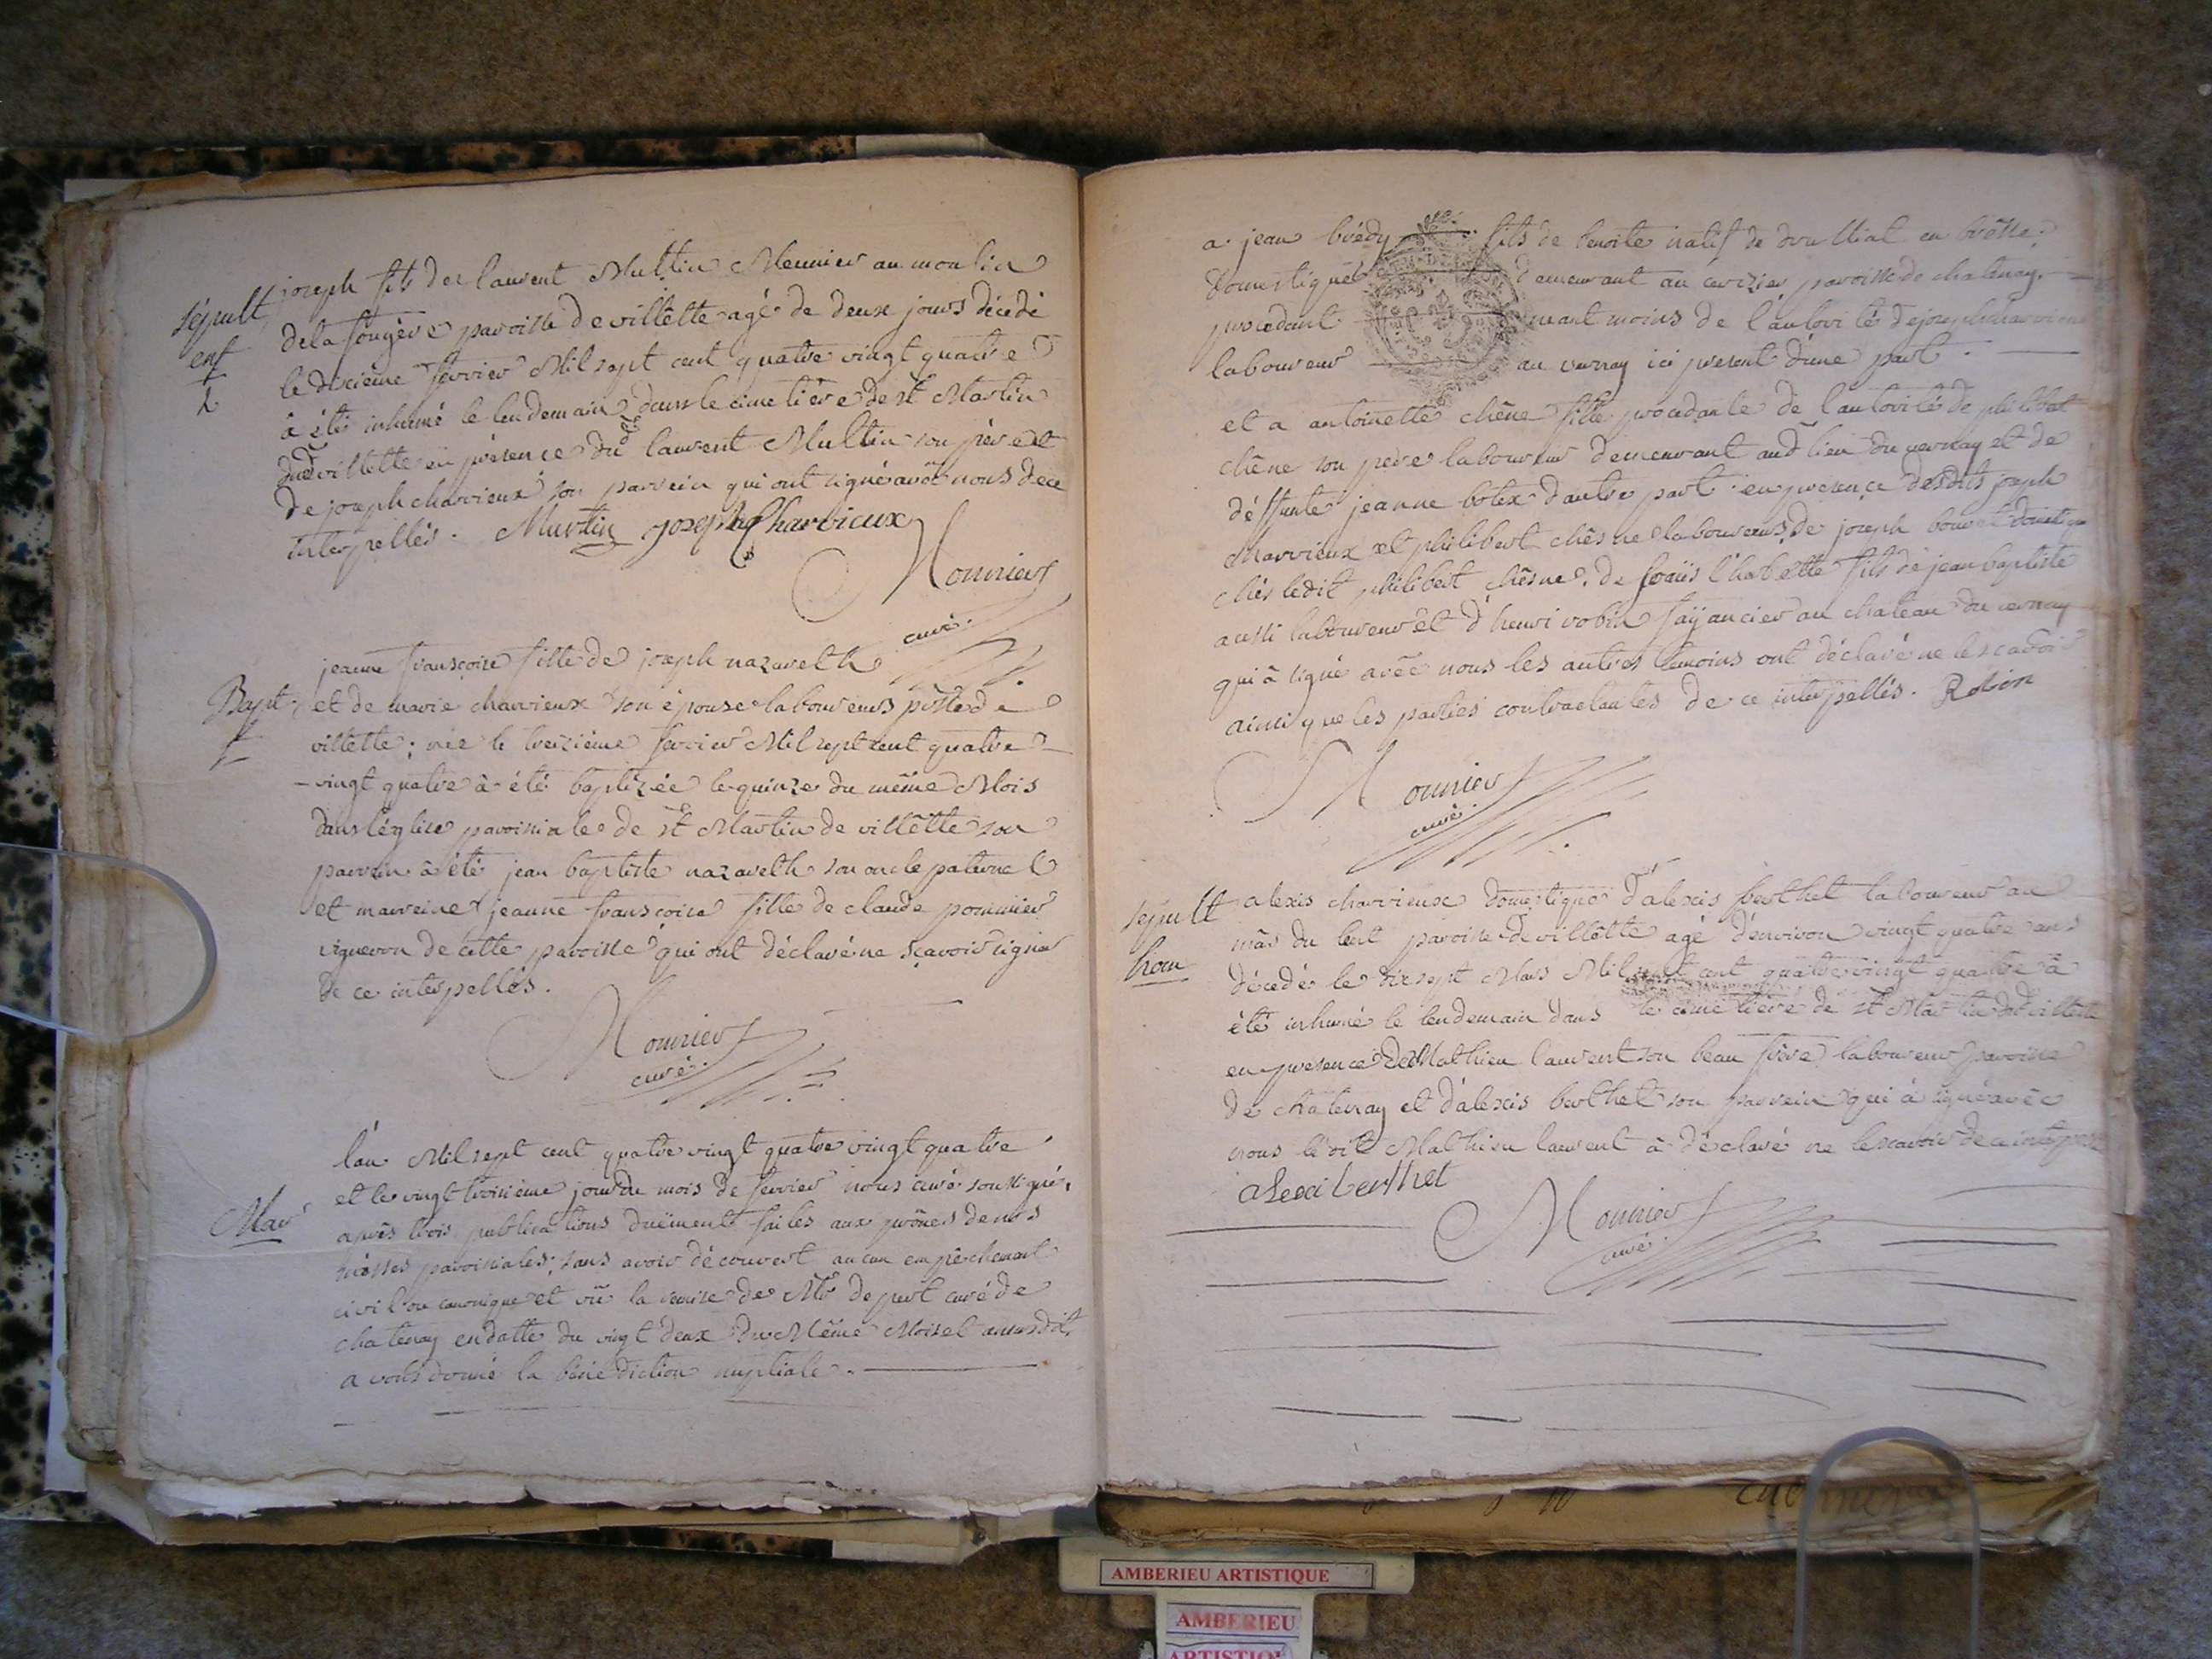 sépult
enf
joseph fils de laurent Multin Meunier au moulin
dela fougère paroisse de villette agé de deux jours décédé
le dixieme fevrier Mil sept cent quatre vingt quatre
à été inhumé le lendemain dans le cimetière de st Martin
dud villette en présence du d laurent Multin son père et
de joseph charvieux son parrein qui ont signé avec nous de ce
interpellés. Multin joseph Charvieux
Mounier
curé.
Bapt.
f
jeanne franscoise fille de joseph nazareth
et de marie charvieux son épouse laboureurs psse de
villette; née le treizième fevrier Mil sept cent quatre
vingt quatre à été baptizée le quinze du même Mois
dans l'église paroissiale de st Martin de villette son
parrein à été jean baptiste nazareth son oncle paternel
et marreine jeanne franscoise fille de claude pommier
vigneron de cette paroisse qui ont déclaré ne sçavoir signer
de ce interpellés.
Mounier
curé.
Mar
l'an Mil sept cent quatre vingt quatre vingt quatre
et le vingt troisième jour du mois de fevrier nous curé soussigné,
après trois publications duëment faites aux prônes de nos
mèsses paroissiales; sans avoir découvert aucun empêchement
civil ou canonique et vû la remise de Mr curé de
chatenay en datte du vingt deux du Même Mois et an susdit,
avons donné la bénédiction nuptiale.
a jean brédy fils de benoite natif de en brèsse
domestique demeurant au cerizier paroisse de chatenay.
procedant neantmoins de l'autorité de joseph charvieux
laboureur au vernay ici present d'une part.
et a antoinette chêne fille procedante de l'autorité de philibert
chêne son père laboureur demeurant aud lieu du vernay et de
déffunte jeanne botex d'autre part en presence desdits joseph
charvieux et philibert chêsne laboureurs, de joseph domestique
chés ledit philibert chêsne, de l'habette fils de jean baptiste
aussi laboureur et d'henri robin fayancier au chateau du vernay
qui à signé avec nous les autres temoins ont déclaré ne le scavoir
ainsi que les parties contractantes de ce interpellés. Robin
Mounier
curé.
sépult
hom
alexis charvieux domestique d'alexis berthet laboureur au
mâs du paroisse de villette agé d'environ vingt quatre ans
décédé le dix sept Mars Mil sept cent quatre vingt quatre à
été inhumé le lendemain dans le cimetière de st Martin de villette
en presence de Mathieu laurent son beau frère laboureur paroisse
de chatenay et d'alexis berthet son parrein qui à signé avec
nous ledit Mathieu laurent à déclaré ne le scavoir de ce
alexi berthet
Mounier
curé.
AMBERIEU ARTISTIQUE
AMBERIEU